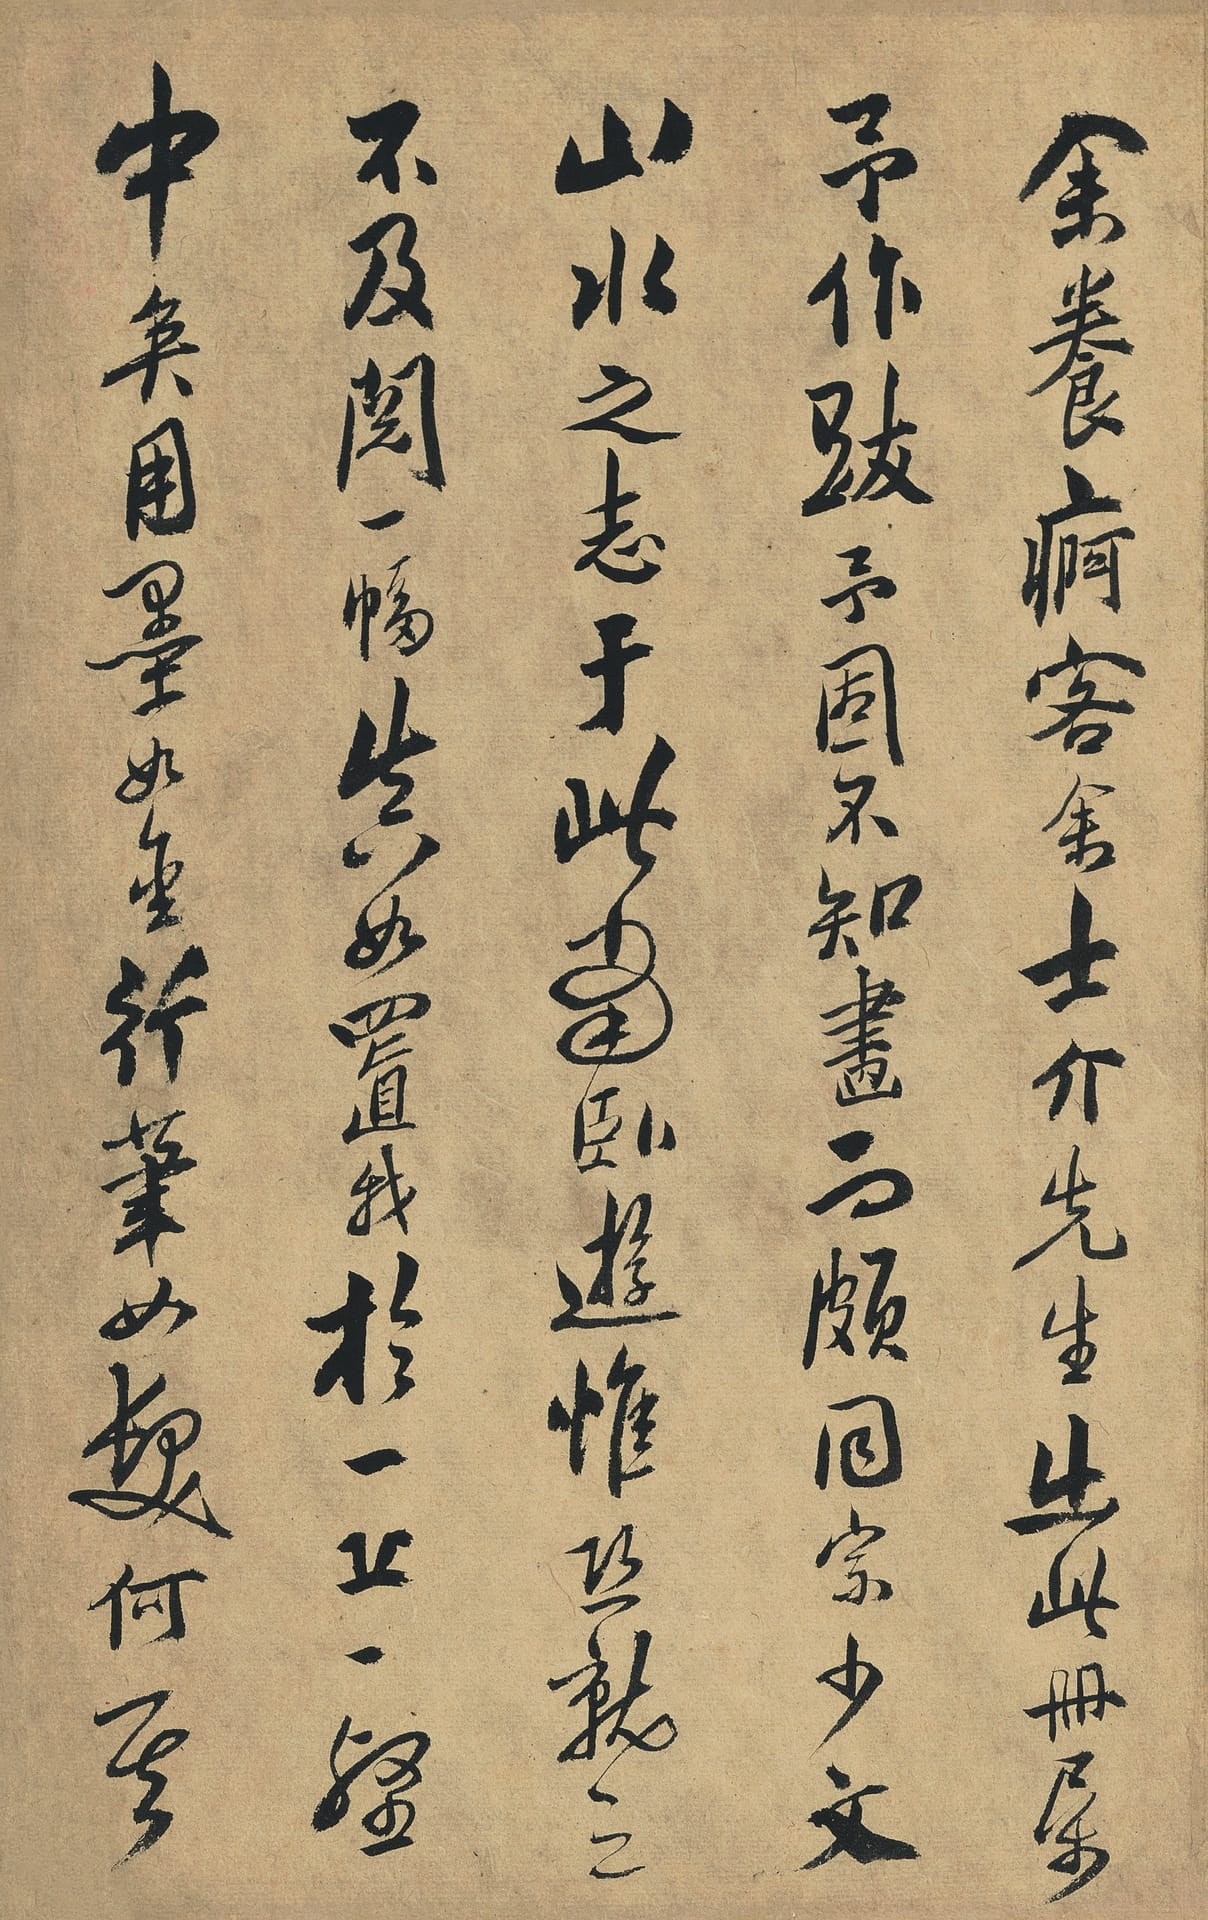 余養痾客舍士介先生出此冊屬
予作跋予固不知畫而頗同宗少文
山水之志于此當臥遊惟恐就之
不及閱一幅失六如置我於一丘一壑
中矣用墨如金行筆如何其